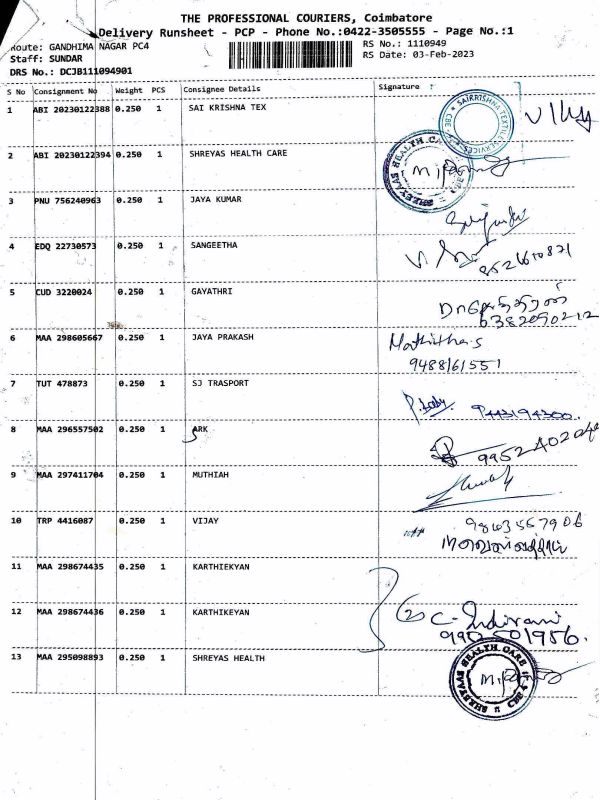 THE PROFESSIONAL COURIERS, Coimbatore
Delivery Runsheet - PCP - Phone No.:0422-3505555 - Page No.:1
Route: GANDHIMA NAGAR PC4
RS No.: 1110949
Staff: SUNDAR
RS Date: 03-Feb-2023
DRS No.: DCJB111094901
S No Consignment No Weight PCS Consignee Details Signature
1 ABI 20230122388 0.250 1 SAI KRISHNA TEX
2 ABI 20230122394 0.250 1 SHREYAS HEALTH CARE
3 PNU 756240963 0.250 1 JAYA KUMAR
4 EDQ 22730573 0.250 1 SANGEETHA
5 CUD 3220024 0.250 1 GAYATHRI
6382090212
6 MAA 298605667 0.250 1 JAYA PRAKASH
9488161551
7 TUT 478873 0.250 1 SJ TRASPORT
9443194300
8 MAA 296557502 0.250 1 ARK
9 MAA 297411704 0.250 1 MUTHIAH
10 TRP 4416087 0.250 1 VIJAY
11 MAA 298674435 0.250 1 KARTHIEKYAN
12 MAA 298674436 0.250 1 KARTHIKEYAN
2 C. Indirani
13 MAA 295098893 0.250 1 SHREYAS HEALTH
SHREYAAS HEALTH CARE